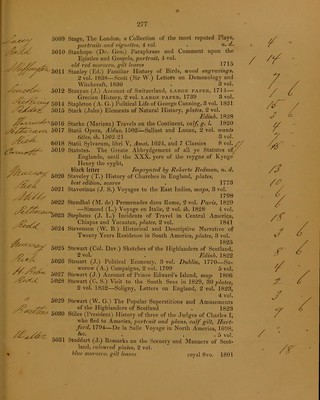 277
5009 Stage, The London, a Collection of the most reputed Plays,
portraits and vignettes, 4 vol. n. d.
5010 Stanhope (Dr. Geo.) Paraphrase and Comment upon the
Epistles and Gospels, portrait, 4 vol.
old red morocco, gilt leaves 1715
5011 Stanley (Ed.) Familiar History of Birds, wood engravings,
2 vol. 1838—Scott (Sir W.) Letters on Demonology and
Witchcraft, 1830 3 vol.
5012 Stanyan (J.) Account of Switzerland, LARGE PAPER, 1714—
Grecian History, 2 vol. LARGE PAPER, 1739 3 vol.
5014 Stapleton (A. G.) Political Life of George Canning, 3 vol. 1831
5015 Stark (John) Elements of Natural History, plates, 2 vol.
Edinb. 1828
5016 Starke (Mariana) Travels on the Continent, calf, g. l. 1820
5017 Statii Opera, Aldus, 1502—Sallust and Lucan, 2 vol. wants
titles, ib. 1502-21 3 vol.
5018 Statii Sylvarum, libri V, Amst. 1624, and 7 Classics 8 vol.
5019 Statutes. The Greate Abbrydgement of all ye Statutes of
Englande, untill the XXX. yere of the reygne of Kynge
Henry the eyght,
black letter Imprynted by Roberte Redman, n. d.
5020 Staveley (T.) History of Churches in England, plates,
best edition, scarce 1773
5021 Stavorinus (J. S.) Voyages to the East Indies, maps, 3 vol.
1798
5022 Stendhal (M. de) Promenades dans Rome, 2 vol. Paris, 1829
—Simond (L.) Voyage en Italie, 2 vol. ib. 1828 4 vol.
5023 Stephens (J. L.) Incidents of Travel in Central America,
Chiapas and Yucatan, plates, 2 vol. 1841
5024 Stevenson (W. B.) Historical and Descriptive Narrative of
Twenty Years Residence in South America, plates, 3 vol.
1825
5025 Stewart (Col. Dav.) Sketches of the Highlanders of Scotland,
2 vol. Edinb. 1822
5026 Steuart (J.) Political Economy, 3 vol. Dublin, 1770—Su-
worow (A.) Campaigns, 2 vol. 1799 5 vol.
5027 Stewart (J.) Account of Prince Edward's Island, map 1806
5028 Stewart (C. S.) Visit to the South Seas in 1829, 30 plates,
2 vol. 1832—Soligny, Letters on England, 2 vol. 1823,
4 vol.
5029 Stewart (W. G.) The Popular Superstitions and Amusements
of the Highlanders of Scotland 1823
5030 Stiles (President) History of three of the Judges of Charles I,
who fled to America, portrait and plans, calf gilt, Hart-
ford, 1794—De la Salle Voyage in North America, 1698,
&c. 5 vol.
5031 Stoddart (J.) Remarks on the Scenery and Manners of Scot-
land, coloured plates, 2 vol.
blue morocco, gilt leaves royal 8vo. 1801
18